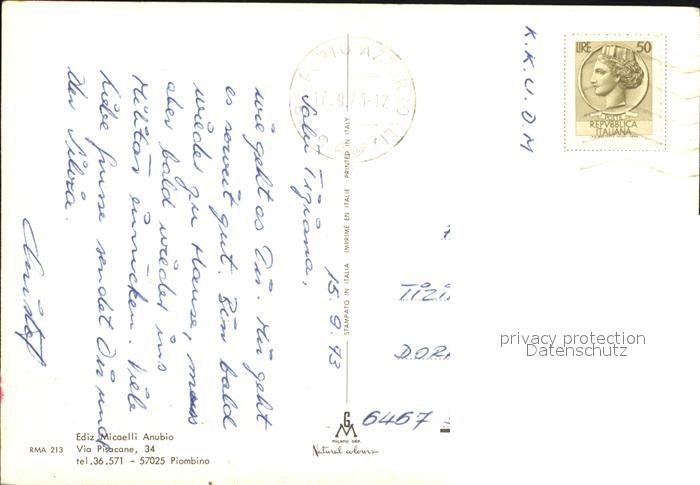 K. K. U. O. M
LIRE 50
POSTE
REPVBBLICA
ITALIANA
17.9.73-12
15.9.73
Salü Tiziana,
wie geht es Dir. Mir geht
es soweit gut. Bin bald
wieder zu Hause, muss
aber bald wieder ins
Militär einrücken. Viele
liebe Grüsse sendet Dir und
der Silvia.
STAMPATO IN ITALIA IMPRIMÉ EN ITALIE PRINTED IN ITALY
TIZI
DOR
6467
privacy protection
Datenschutz
G
M
MILANO DEP.
Natural colours
RMA 213
Ediz. Micaelli Anubio
Via Pisacane, 34
tel.36.571 - 57025 Piombino